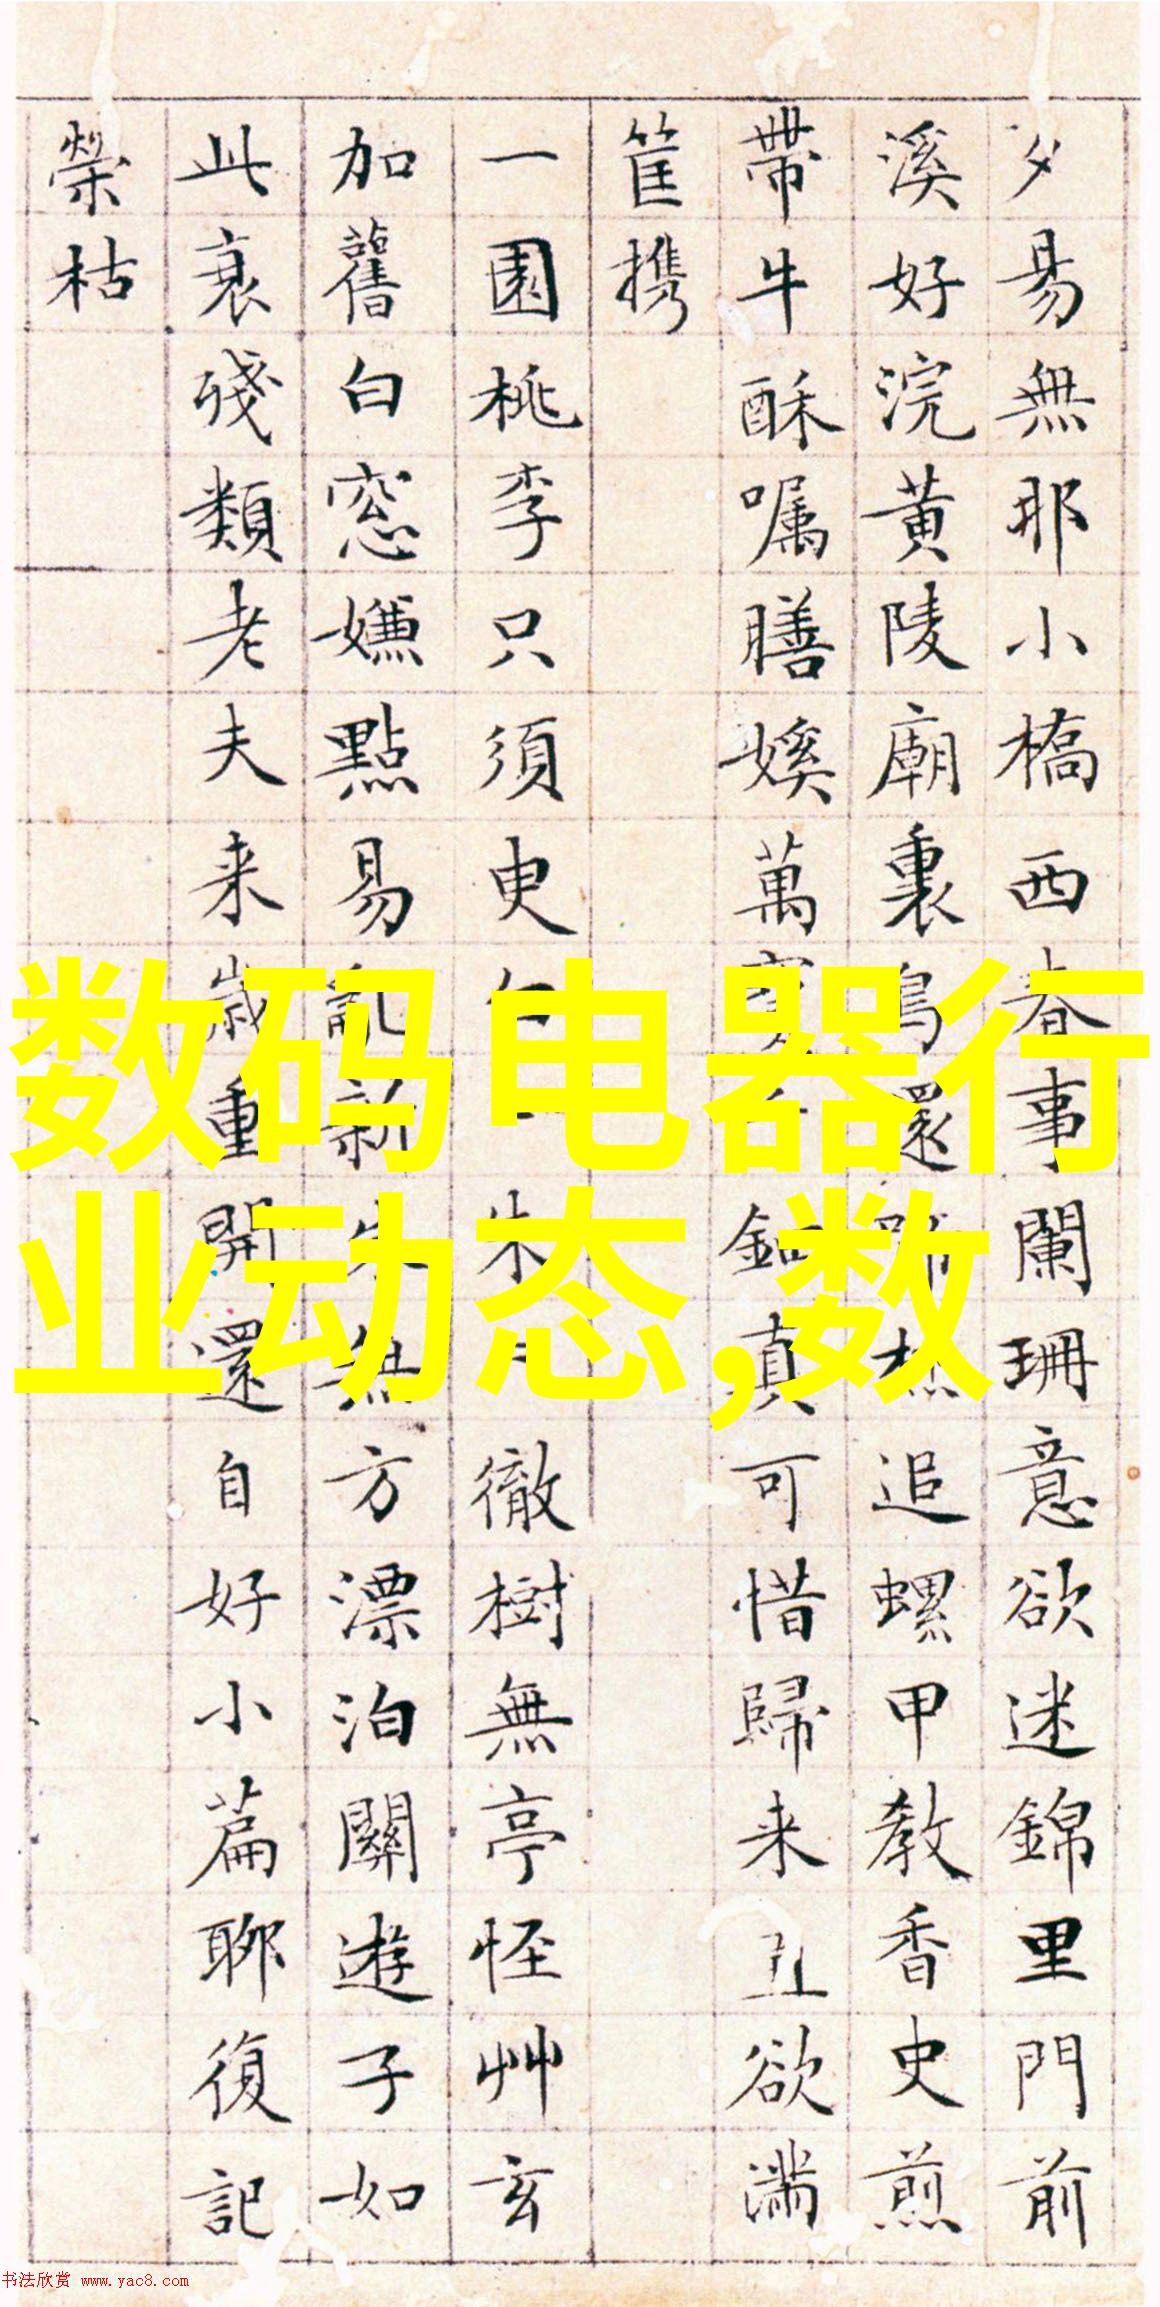 夕易無那小橋西春事闌珊意欲迷錦里門前
溪好浣黄陵廟裏鳥還追螺甲教香史煎
帶牛酥嘱膳媄萬真可惜歸来丑欲满
筐携
一園桃李只須臾白朱徹樹無亭怪艸玄
加舊白窓嫌點易亂新朱無方漂泊關遊子如
此衰殘類老夫来歳重開還自好小篇聊復記
榮枯
数码电器行
业动态,数
书法欣赏 www.yac8.com